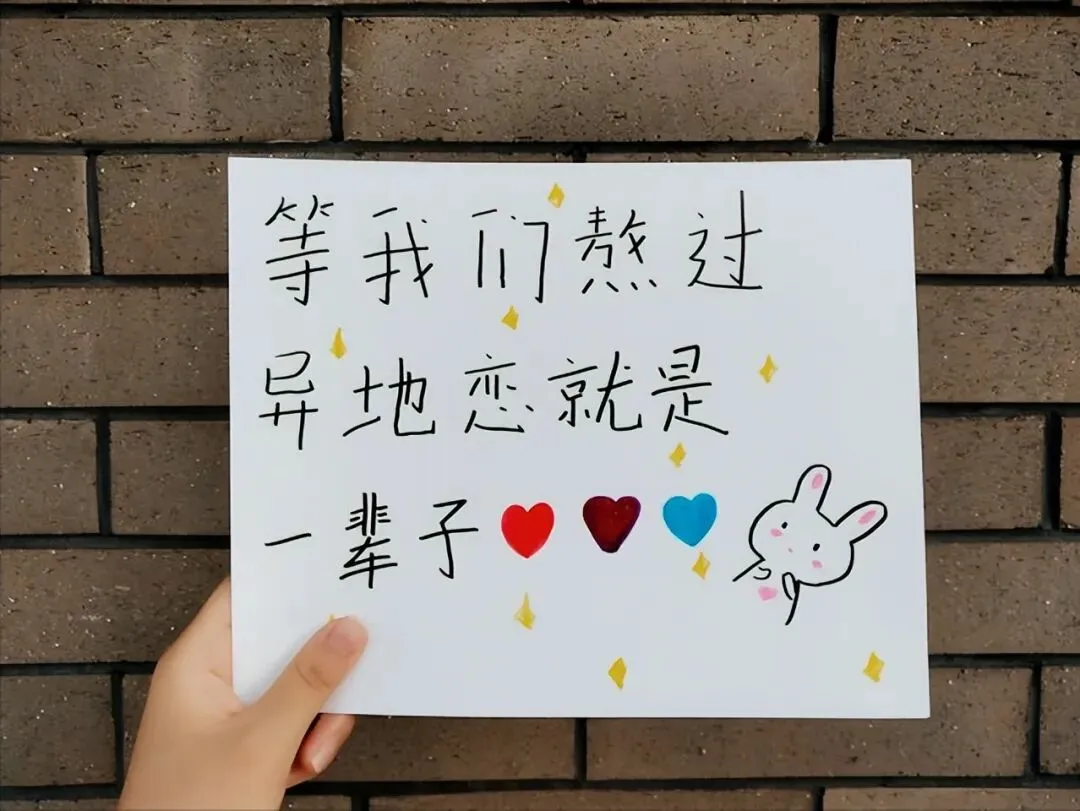 等我们熬过
异地恋就是
一辈子